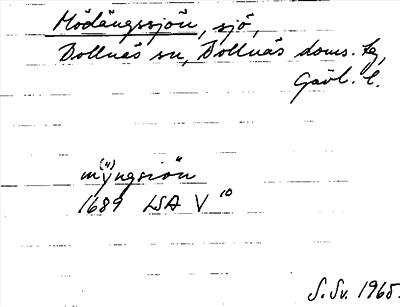 Mödängssjön, sjö,
Bollnäs sn, Bollnäs doms. lg,
Gävl. l.
m(ÿ)ngsiön
1689 LSA V 10
S. Sv. 1965.